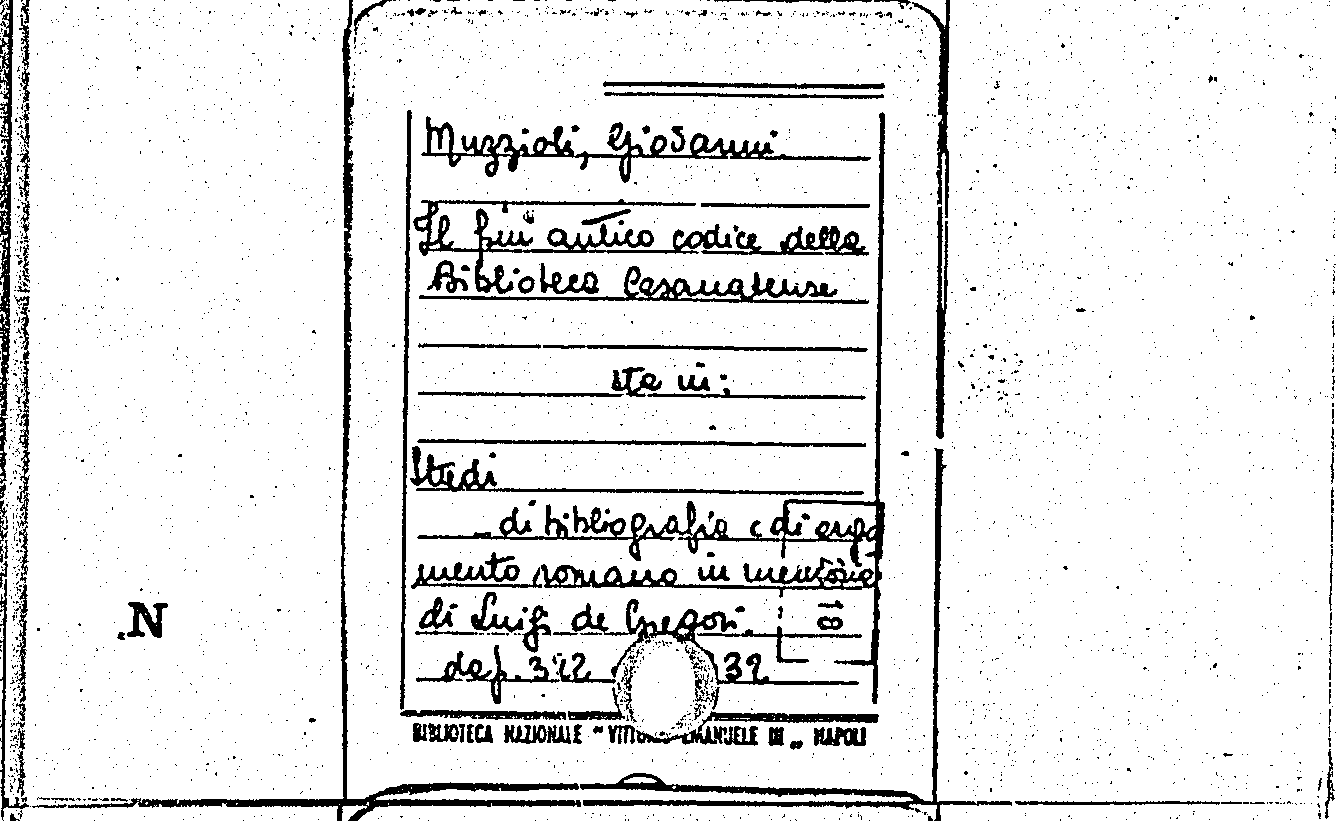 Muzzioli, Giovanni.
Il più antico codice della
Biblioteca Casanatense
sta in:
Studi
di bibliografia e di argo
mento romano in memoria
di Luigi de Gregori.
da p. 32
BIBLIOTECA NAZIONALE "VITTORIO EMANUELE III" NAPOLI
N